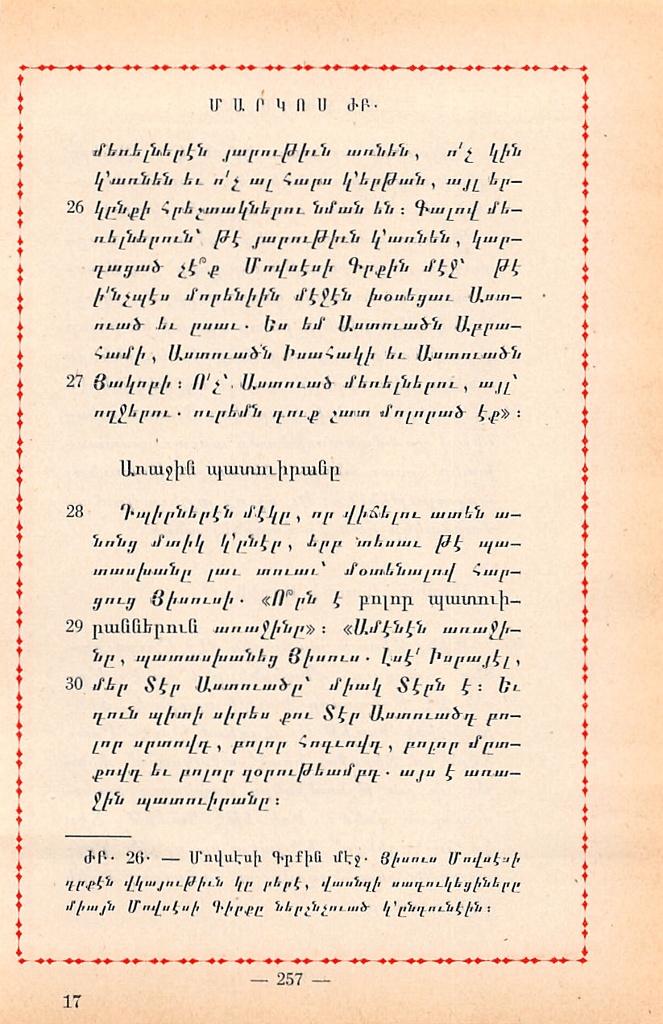 ՄԱՐԿՈՍ ԺԲ.
մեռելներէն յարութիւն առնեն, ո՛չ կին
կ՚առնեն եւ ո՛չ ալ հարս կ՚երթան, այլ եր-
26 կընքի հրեշտակներու նման են։ Գալով մե-
ռելներուն՝ թէ յարութիւն կ՚առնեն, կար-
դացած չէ՞ք Մովսէսի Գրքին մէջ՝ թէ
ի՛նչպէս մորենիին մէջէն խօսեցաւ Աստ-
ուած եւ ըսաւ. Ես եմ Աստուածն Աբրա-
համի, Աստուածն Իսահակի եւ Աստուածն
27 Յակոբի։ Ո՛չ՝ Աստուած մեռելներու, այլ՝
ողջերու. ուրեմն դուք շատ մոլորած էք»։
Առաջին պատուիրանը
28 Դպիրներէն մէկը, որ վիճելու ատեն ա-
նոնց մտիկ կ՚ընէր, երբ տեսաւ թէ պա-
տասխանը լաւ տուաւ՝ մօտենալով հար-
ցուց Յիսուսի. «Ո՞րն է բոլոր պատուի-
29 րաններուն առաջինը»։ «Ամէնէն առաջի-
նը, պատասխանեց Յիսուս. Լսէ՛ Իսրայէլ,
30 մեր Տէր Աստուածը՝ միակ Տէրն է։ Եւ
դուն պիտի սիրես քու Տէր Աստուածդ բո-
լոր սրտովդ, բոլոր հոգւովդ, բոլոր մըտ-
քովդ եւ բոլոր զօրութեամբդ. այս է առա-
ջին պատուիրանը։
ԺԲ. 26. — Մովսէսի Գրքին մէջ. Յիսուս Մովսէսի
գրքէն վկայութիւն կը բերէ, վասնզի սադուկեցիները
միայն Մովսէսի Գիրքը ներշնչուած կ՚ընդունէին։
— 257 —
17